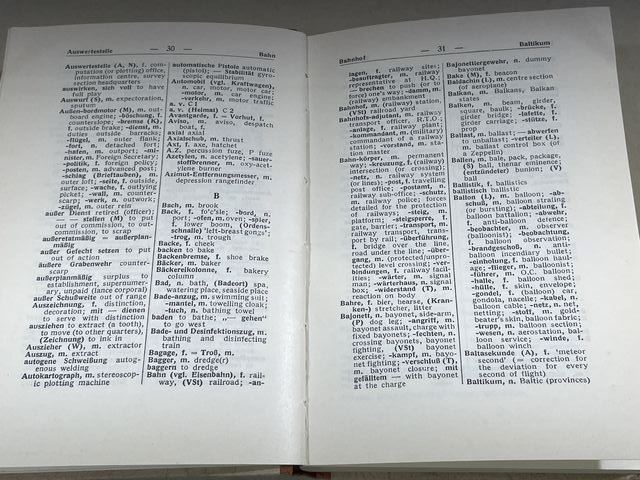 Auswertestelle — 30 — Bahn
Auswertestelle (A, N), f. com-
putation (or plotting) office,
information centre, survey
section headquarters
auswirken, sich voll to have
full play
Auswurf (S), m. expectoration,
sputum
Außen-bordmotor (M), m. out-
board engine; -böschung, f.
counterslope; -bremse (K),
f. outside brake; -dienst, m.
duties outside barracks;
-flügel, m. outer flank;
-fort, n. detached fort;
-hafen, m. outport; -mi-
nister, m. Foreign Secretary;
-politik, f. foreign policy;
-posten, m. advanced post;
-schlag (Brieftauben), m.
outer loft; -seite, f. outside,
surface; -wache, f. outlying
picket; -wall, m. counter-
scarp; -werk, n. outwork;
-zügel, m. outer rein
außer Dienst (retired officer)
— — stellen (M) to put
out of commission, to out-
commission, to scrap
außeretatmäßig = außerplan-
mäßig
außer Gefecht setzen to put
out of action
äußere Grabenwehr counter-
scarp
außerplanmäßig surplus to
establishment, supernumer-
ary, unpaid (lance corporal)
außer Schußweite out of range
Auszeichnung, f. distinction,
decoration; mit — dienen
to serve with distinction
ausziehen to extract (a tooth),
to move (to other quarters),
(Zeichnung) to ink in
Auszieher (W), m. extractor
Auszug, m. extract
autogene Schweißung autog-
enous welding
Autokartograph, m. stereoscop-
ic plotting machine
automatische Pistole automatic
(pistol); — Stabilität gyro-
scopic equilibrium
Automobil (vgl. Kraftwagen),
n. car, motor, motor car;
-motor, m. car engine;
-verkehr, m. motor traffic
a. v. C 1
a. v. (Heimat) C 2
Avantgarde, f. = Vorhut, f.
Aviso, m. aviso, despatch
boat, f.
axial axial
Axialschub, m. thrust
Axt, f. axe, hatchet
A.Z. percussion fuze, P fuze
Azetylen, n. acetylene; -sauer-
stoffbrenner, m. oxy-acet-
ylene burner
Azimut-Entfernungsmesser, m.
depression rangefinder
B
Bach, m. brook
Back, f. fo'c'sle; -bord, n.
port; -ofen, m. oven; -spier,
f. lower boom, (Ordens-
schnalle) 'left-breast gongs';
-trog, m. trough
Backe, f. cheek
backen to bake
Backenbremse, f. shoe brake
Bäcker, m. baker
Bäckereikolonne, f. bakery
column
Bad, n. bath, (Badeort) spa,
watering place, seaside place
Bade-anzug, m. swimming suit;
-mantel, m. towelling cloak;
-tuch, n. bathing towel
baden to bathe; „— gehen"
to go west
Bade- und Desinfektionszug, m.
bathing and disinfecting
train
Bagage, f. = Troß, m.
Bagger, m. dredge(r)
baggern to dredge
Bahn (vgl. Eisenbahn), f. rail-
way, (VSt) railroad; -an-
Bahnhof — 31 — Baltikum
lagen, f. railway site;
-beauftragter, m. railway
representative at H.Q.;
— brechen to push (or to
force) one's way; -damm, m.
(railway) embankment
Bahnhof, m. (railway) station,
(VSt) railroad yard
Bahnhofs-adjutant, m. railway
transport officer, R.T.O.;
-anlage, f. railway plant;
-kommandant, m. (military)
commandant of a railway
station; -vorstand, m. sta-
tion master
Bahn-körper, m. permanent
way; -kreuzung, f. (railway)
intersection (or crossing);
-netz, n. railway system
(or lines); -post, f. travelling
post office; -postamt, n.
railway sub-office; -schutz,
m. railway police; forces
detailed for the protection
of railways; -steig, m.
platform; -steigsperre, f.
gate, barrier; -transport, m.
railway transport, trans-
port by rail; -überführung,
f. bridge over the line,
road under the line; -über-
gang, m. (protected/unpro-
tected) level crossing; -ver-
bindungen, f. railway facili-
ties; -wärter, m. signal
man; -wärterhaus, n. signal
box; -widerstand (T), m.
reaction on body
Bahre, f. bier, hearse, (Kran-
ken-) stretcher
Bajonett, n. bayonet, side-arm,
(P) dog leg; -angriff, m.
bayonet assault, charge with
fixed bayonets; -fechten, n.
crossing bayonets, bayonet
fighting, (VSt) bayonet
exercise; -kampf, m. bayo-
net fighting; -verschluß (T),
m. bayonet closure; mit
gefälltem — with bayonet
at the charge
Bajonettiergewehr, n. dummy
bayonet
Bake (M), f. beacon
Baldachin (L), m. centre section
(of aeroplane)
Balkan, m. Balkans, Balkan
States
Balken, m. beam, girder,
square, baulk; -brücke, f.
girder bridge; -lafette, f.
girder carriage; -stütze, f.
prop
Ballast, m. ballast; — abwerfen
to unballast; -verteiler (L), m.
ballast control box (of
a Zeppelin)
Ballen, m. bale, pack, package,
(S) ball, thenar eminence;
(entzündeter) bunion; (V)
bulb
Ballistik, f. ballistics
ballistisch ballistic
Ballon (L), m. balloon; -ab-
schuß, m. balloon straling
(or bursting); -abteilung, f.
balloon battalion; -abwehr,
f. anti-balloon defence;
-beobachter, m. observer
(balloonist); -beobachtung,
f. balloon observation;
-brandgeschoß, n. anti-
balloon incendiary bullet;
-einholung, f. balloon haul-
age; -flieger, m. balloonist;
-führer, m. O.C. balloon;
-halle, f. balloon shed;
-hülle, f. skin, envelope;
-gondel, f. (balloon) car,
gondola, nacelle; -kabel, n.
balloon cable; -netz, n. net,
netting; -stoff, m. gold-
beater's skin, balloon fabric;
-trupp, m. balloon section;
-wesen, n. aerostation, bal-
loon service; -winde, f.
balloon winch
Baltasekunda (A), f. 'meteor
second' (= correction for
the deviation for every
second of flight)
Baltikum, n. Baltic (provinces)